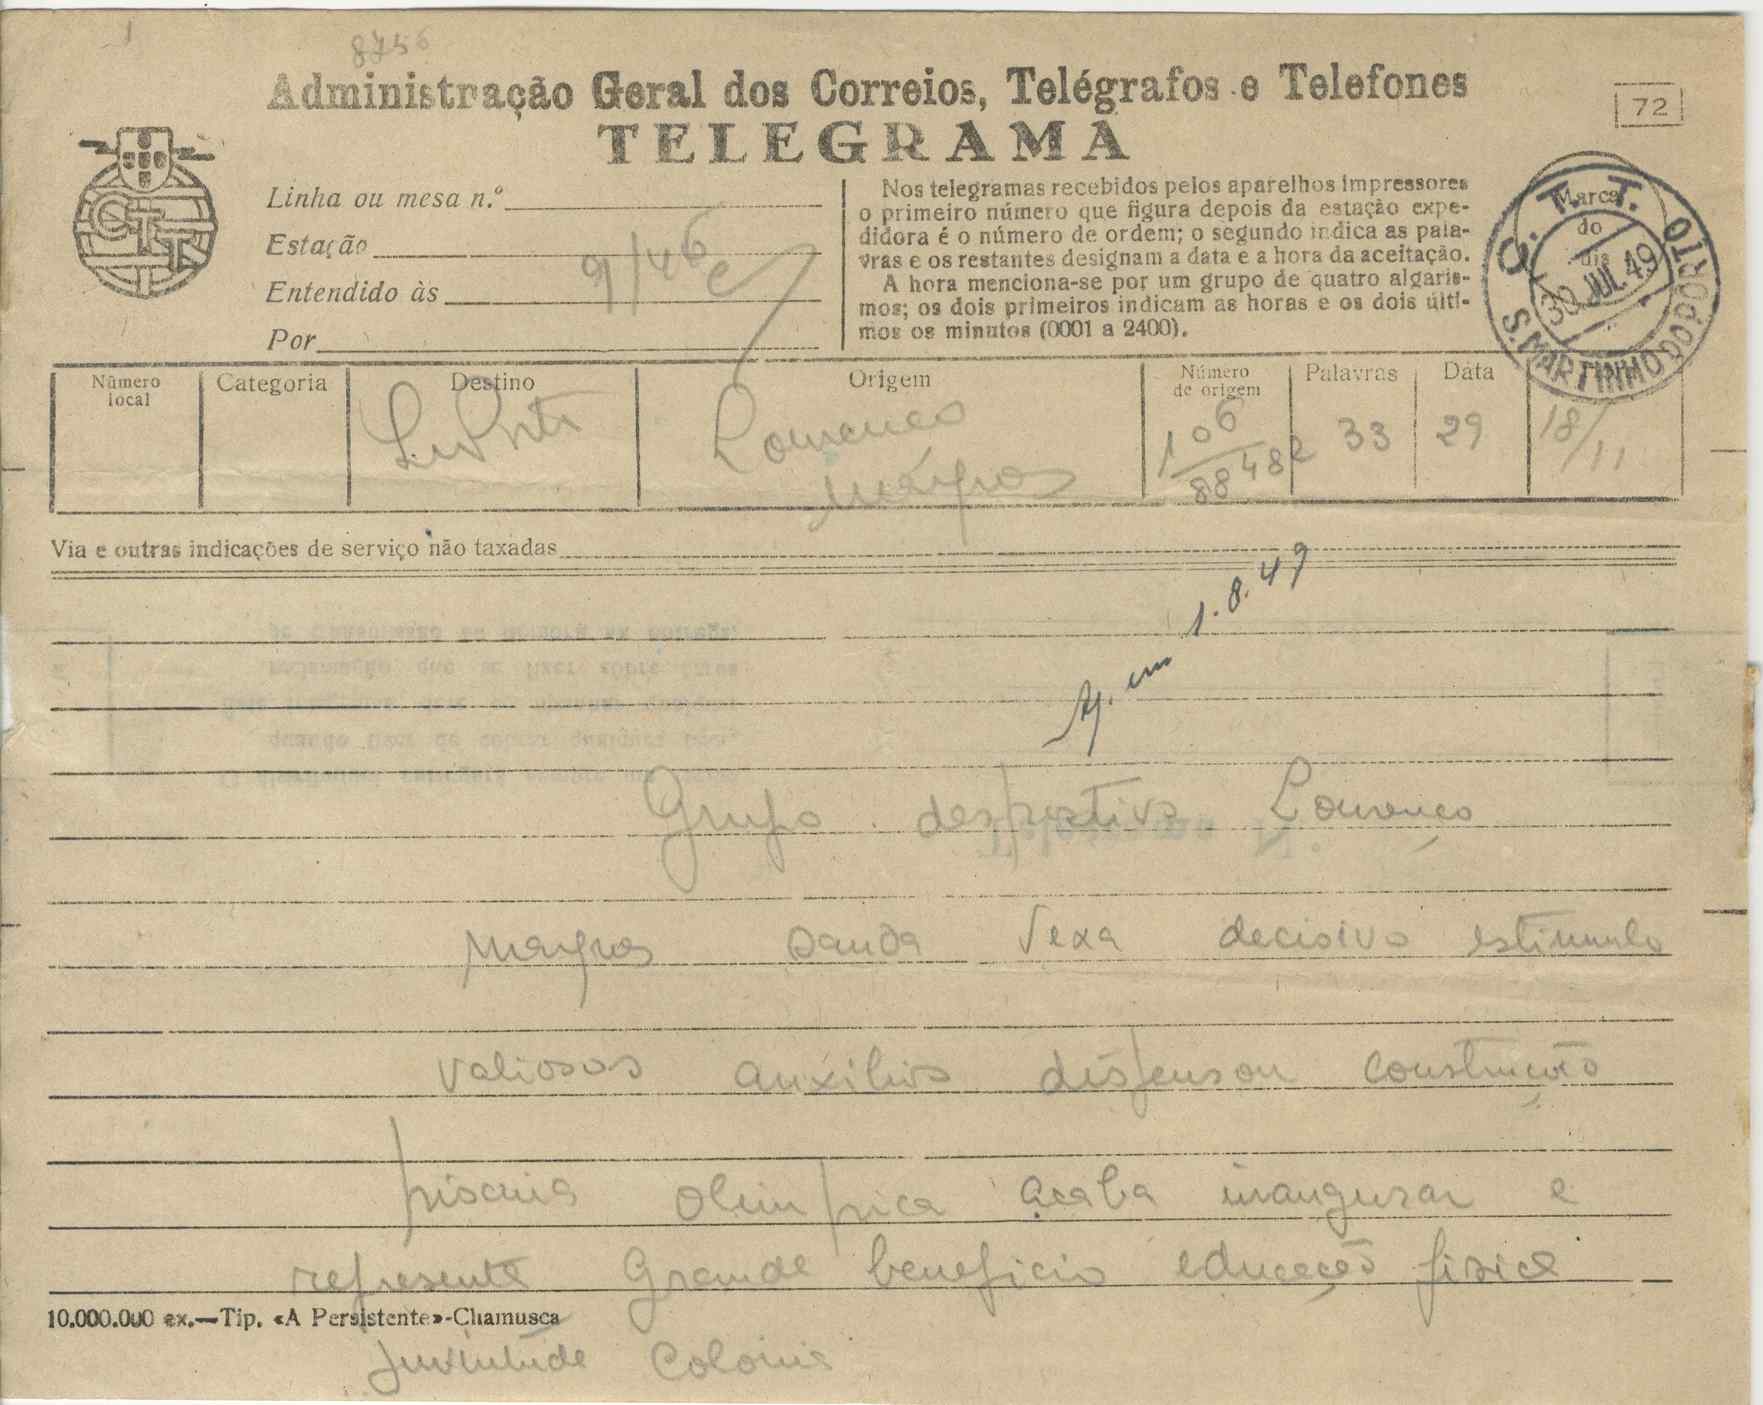 1
8756
Administração Geral dos Correios, Telégrafos e Telefones
72
TELEGRAMA
CTT
Linha ou mesa n.º
Estação
Entendido às
Por
9/46
Nos telegramas recebidos pelos aparelhos impressores
o primeiro número que figura depois da estação expe-
didora é o número de ordem; o segundo indica as pala-
vras e os restantes designam a data e a hora da aceitação.
A hora menciona-se por um grupo de quatro algaris-
mos; os dois primeiros indicam as horas e os dois últi-
mos os minutos (0001 a 2400).
Marca
do
dia
C. T. T.
30 JUL 49
S. MARTINHO DO PORTO
Número local
Categoria
Destino
Origem
Número de origem
Palavras
Data
Lourenço
Marques
106
88482
33
29
18/11
Via e outras indicações de serviço não taxadas
Ag. em 1.8.49
Grupo desportivo Lourenço
Marques sauda Vexa decisivo estimulo
valiosos auxilios dispensou construção
piscina olimpica acaba inaugurar e
representa grande beneficio educação fisica
10.000.000 ex.—Tip. «A Persistente»-Chamusca
juventude Colonia